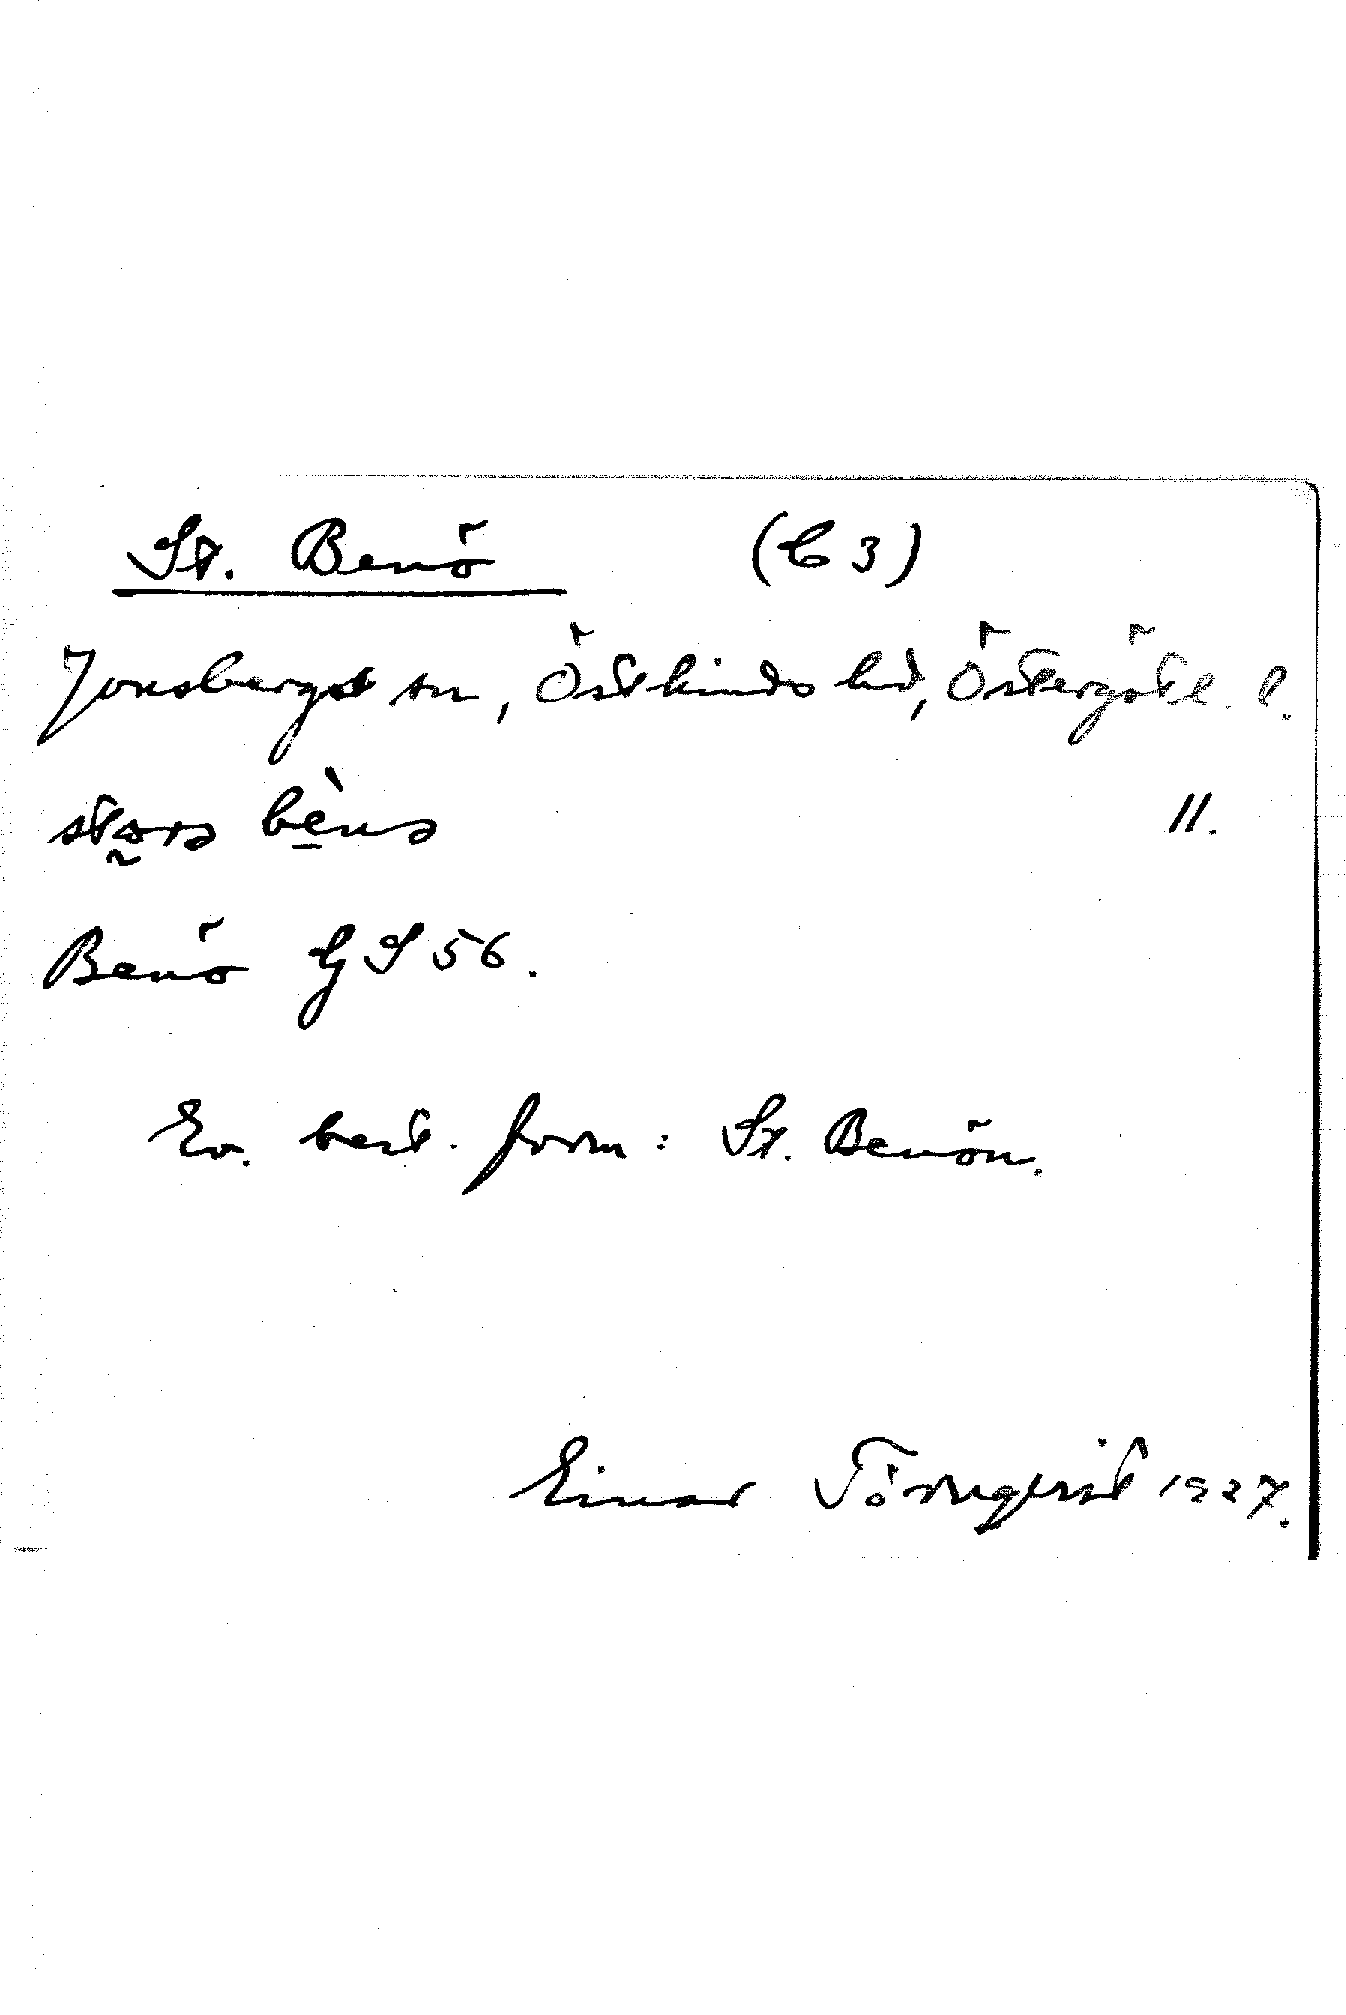 St. Benö (C 3)
Jonsbergs sn, Östkinds hd, Östergötl. l.
storə bènə 11.
Benö GS 56.
Ev. best. form: St. Benön.
Einar Törnqvist 1927.